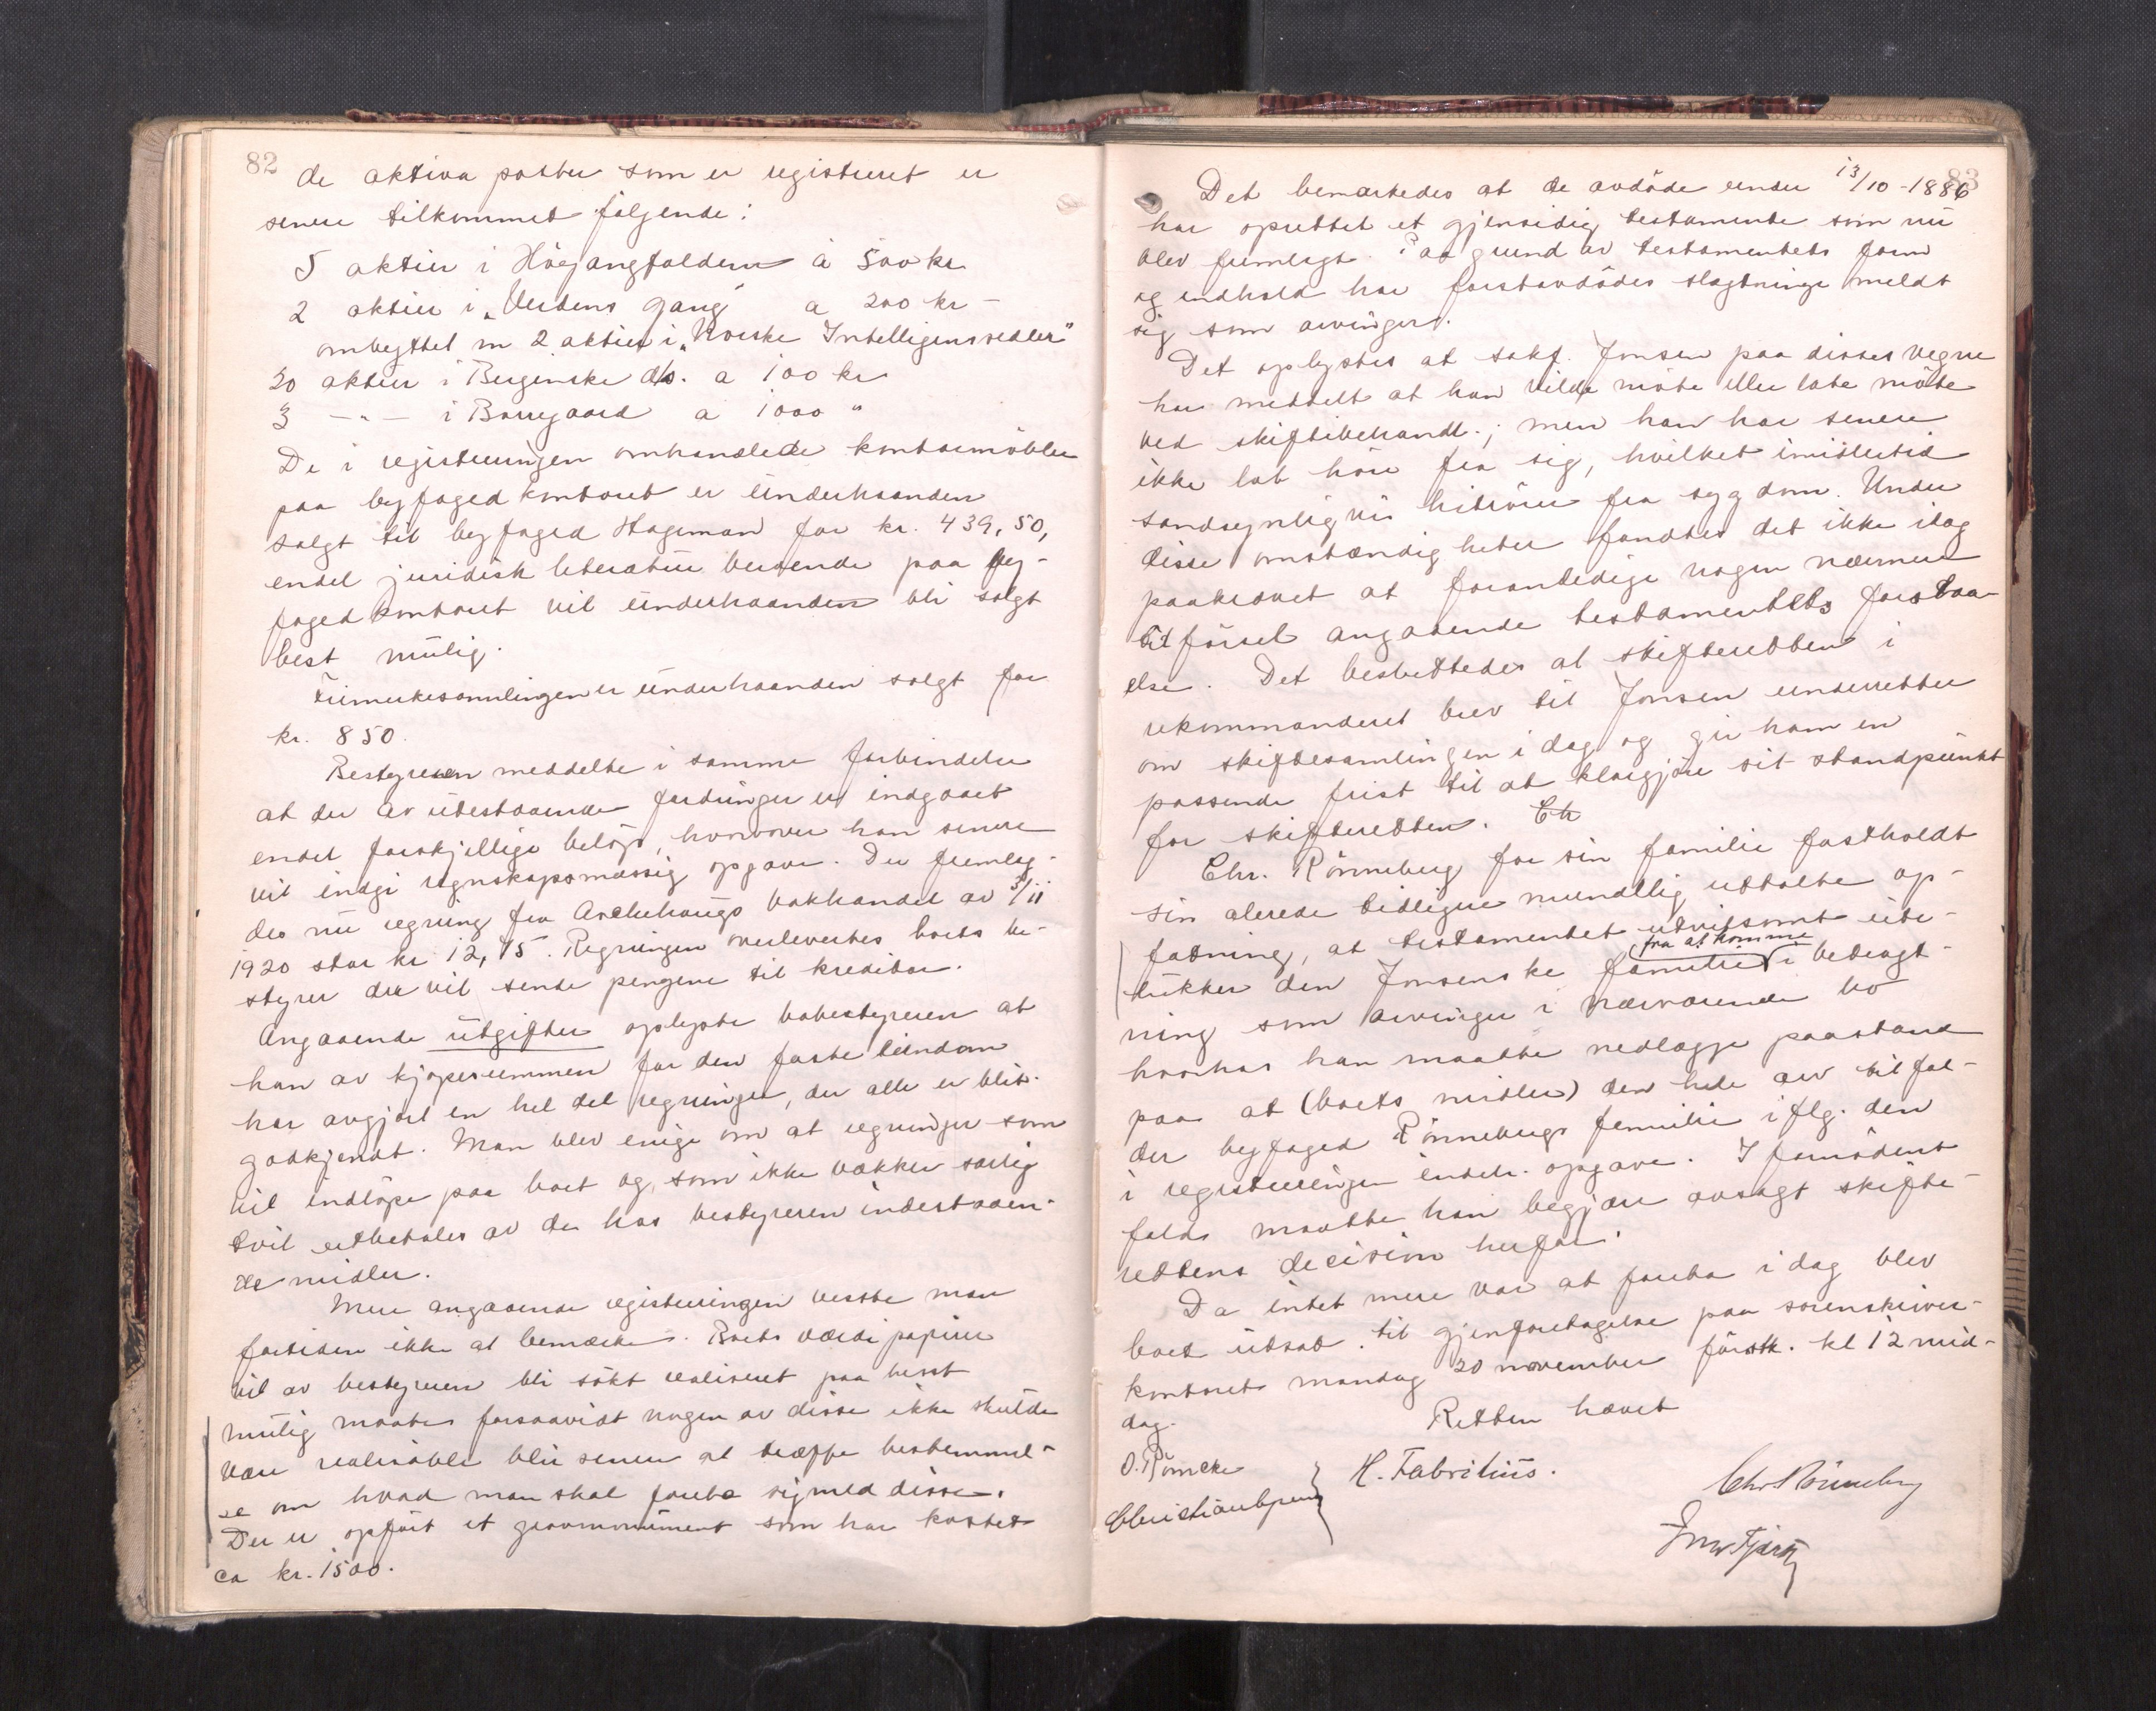 82
de aktiva poster som er registreret er
senere tilkommet følgende:
5 aktier i Høyangfaldene à 500 kr
2 aktier i "Verdens gang" a 200 kr -
ombyttet m 2 aktier i "Norske Intelligenssedler"
20 aktier i Bergenske d/s. a 100 kr
3 -"- i Borregaard a 1000 "
De i registreringen omhandlede kontormøbler
paa byfogedkontoret er underhaanden
solgt til byfoged Hageman for kr. 439,50,
endel juridisk literatur beroende paa by-
fogedkontoret vil underhaanden bli solgt
best mulig.
Frimerkesamlingen er underhaanden solgt for
kr. 850.
Bestyreren meddelte i samme forbindelse
at der av utestaaende fordringer er indgaaet
endel forskjellige beløp, hvorover han senere
vil indgi regnskapsmæssig opgave. Der fremlag-
des nu regning fra Aschehougs bokhandel av 3/11
1920 stor kr 12,75. Regningen overlevertes boets be-
styrer der vil sende pengene til kreditor.
Angaaende utgifter oplyste bobestyreren at
han av kjøpesummen for den faste eiendom
har avgjort en hel del regninger, der alle er blit
godkjendt. Man blev enige om at regninger som
vil indløpe paa boet og som ikke vækker særlig
tvil utbetales av de hos bestyreren indestaaen-
de midler.
Mere angaaende registreringen visste man
forsiden ikke at bemærke. Boets værdipapirer
vil av bestyreren bli søkt realiseret paa best
mulig maate, forsaavidt nogen av disse ikke skulde
være realisable blir senere at træffe bestemmel-
se om hvad man skal foreta sig med disse.
Der er opført et gravmonument som har kostet
ca kr. 1500.
83
Det bemerkedes at de avdøde under 13/10-1886
har oprettet et gjensidig testamente som nu
blev fremlagt. Paa grund av testamentets form
og indhold har førstavdødes slægtninge meldt
sig som arvinger.
Det oplystes at sakf. Jonsen paa disses vegne
har meddelt at han vilde møte eller late møte
ved skiftebehandl.; men han har senere
ikke lat høre fra sig, hvilket imidlertid
sandsynligvis hitrører fra sygdom. Under
disse omstændigheter fandtes det ikke idag
paakrævet at foranledige nogen nærmere
tilførsel angaaende testamentets forstaa-
else. Det besluttedes at skifteretten i
rekommanderet brev til Jonsen underretter
om skiftesamlingen i dag og gir ham en
passende frist til at klargjøre sit standpunkt
for skifteretten. Ch
Chr. Rønneberg for sin familie fastholdt
sin alerede tidligere mundtlig uttalte op-
fatning, at testamentet utvilsomt ute-
lukker den Jonsenske familie fra at komme i betragt-
ning som arvinger i nærværende bo
hvorhos han maatte nedlægge paastand
paa at (boets midler) den hele arv tilfal-
der byfoged Rønnebergs familie iflg. den
i registreringen indeh. opgave. I fornødent
falds maatte han begjære avsagt skifte-
rettens decision herfor.
Da intet mere var at foreta i dag blev
boet utsat til gjenforetagelse paa sorenskriver-
kontoret mandag 20 november førstk. kl 12 mid-
dag.
Retten hævet
H. Fabritius.
Chr Rønneberg